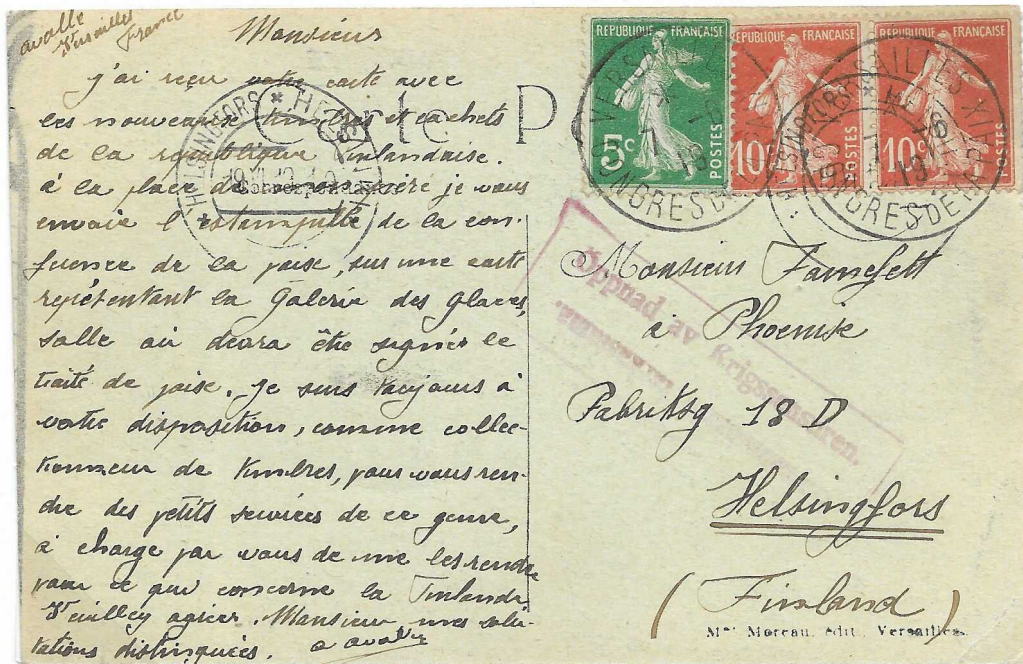 avalle
Versailles
France
Monsieur
j'ai reçu votre carte avec
les nouveaux timbres et cachets
de la république finlandaise.
à la place de je vous
envoie l'estampille de la con-
férence de la paise, sur une carte
représentant la Galerie des glaces,
salle où devra être signée le
traité de paise. Je suis toujours à
votre disposition, comme collec-
tionneur de timbres, pour vous ren-
dre des petits services de ce genre,
à charge par vous de me les rendre
pour ce qui concerne la Finlande
Veuillez agréer, Monsieur, mes salu-
tations distinguées. a avalle
Carte P
Correspondance
HELSINKI
HELSINGFORS
REPUBLIQUE FRANÇAISE
5c
POSTES
REPUBLIQUE FRANÇAISE
10c
POSTES
REPUBLIQUE FRANÇAISE
10c
POSTES
VERSAILLES
CONGRES DE LA PAIX
Öppnad av Krigscensuren.
Monsieur
à Phoenise
Fabriksg 18 D
Helsingfors
(Finland)
Mme Moreau, édit., Versailles.